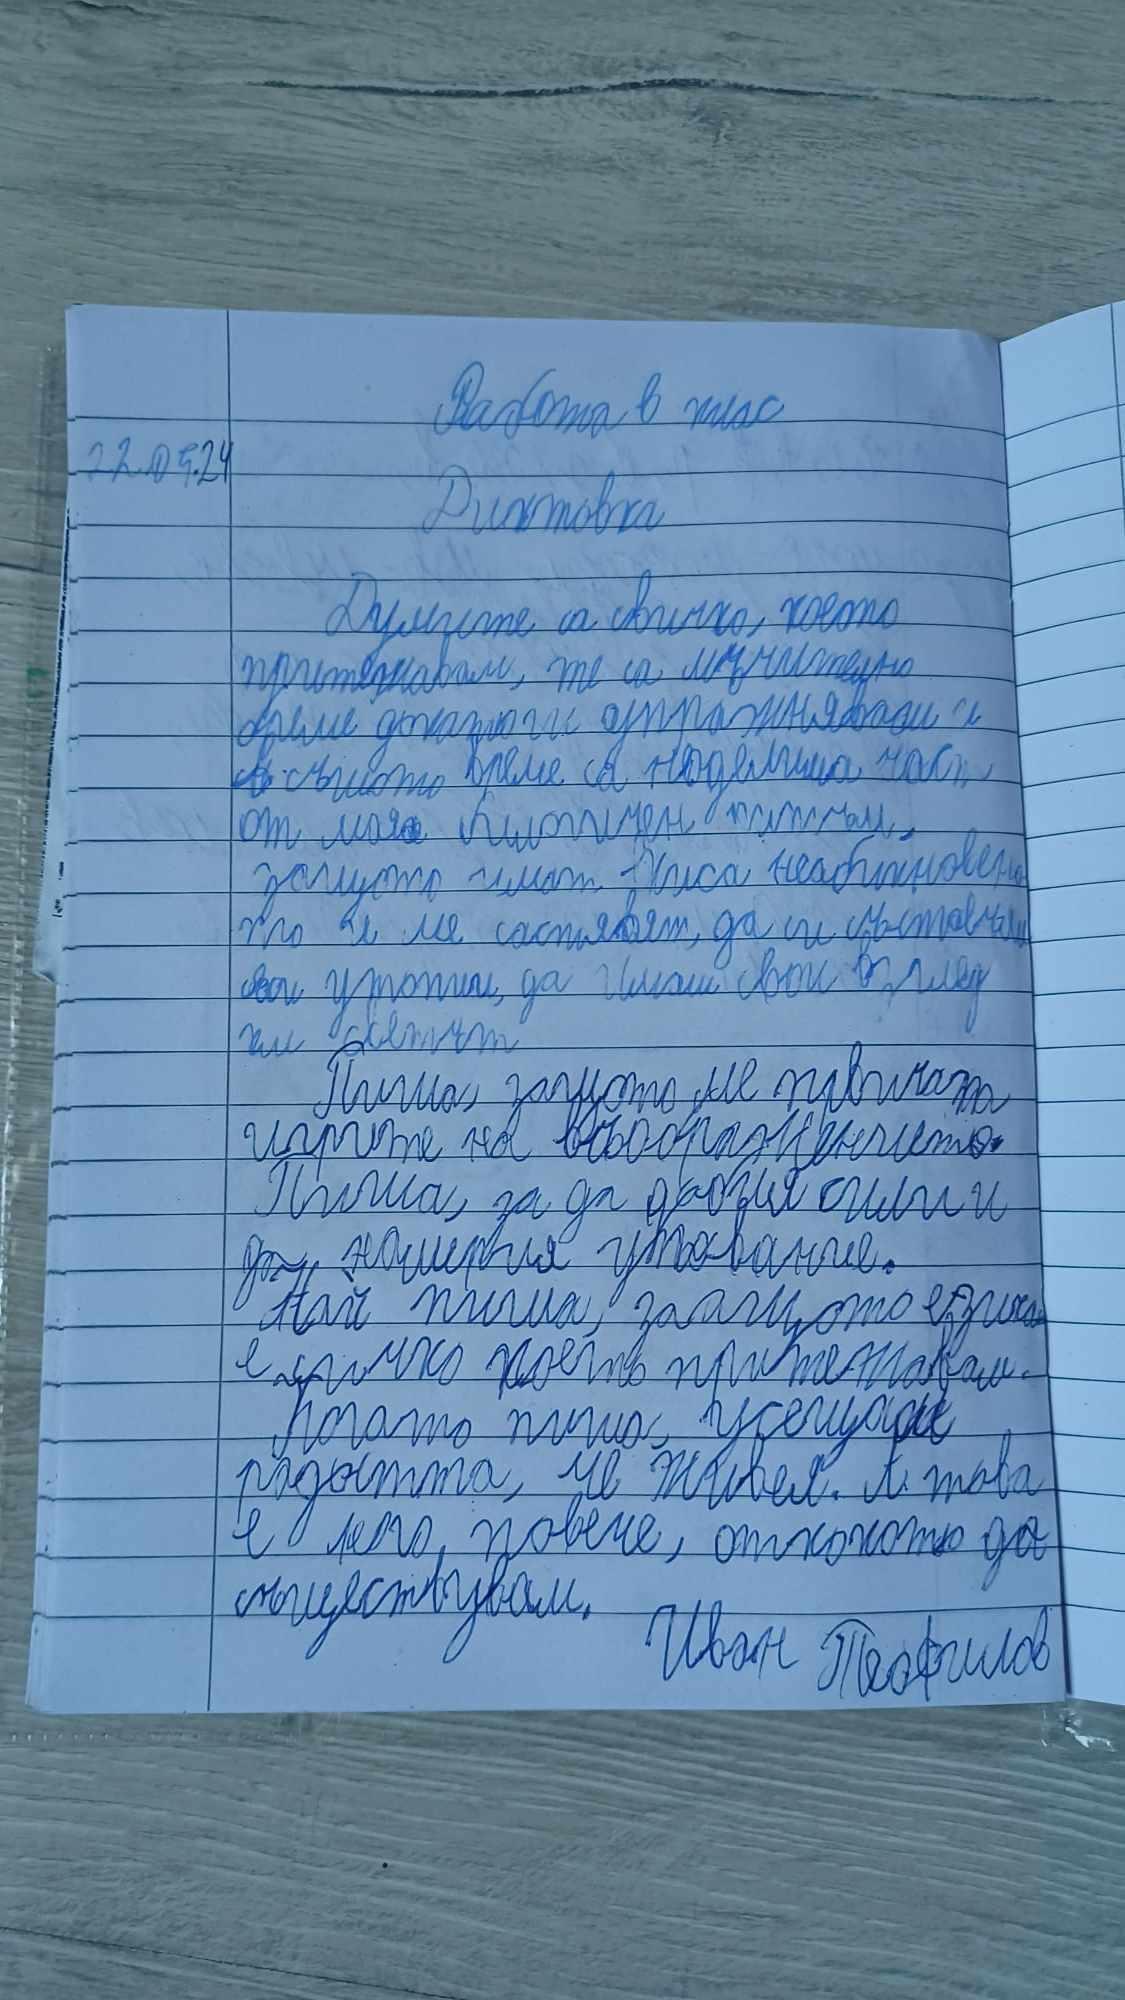 Работа в клас
22.05.24
Диктовка
Думите са всичко, което
притежавам, те са мъчително
време докато ги упражнявам и
в същото време са неделима част
от моя биологичен ритъм,
защото имат вкиса необикновено
то и ме заставят, да си съставям
свои утопии, да имам свои възглед
към светът
Пиша, защото ме привличат
игрите на въображението.
Пиша, за да добия сили и
да намеря упование.
Най пиша, заащото езика
е всичко което притежавам.
Когато пиша, усещаме
радостта, че живея. А това
е нещо повече, отколкото да
съществувам.
Иван Теофилов